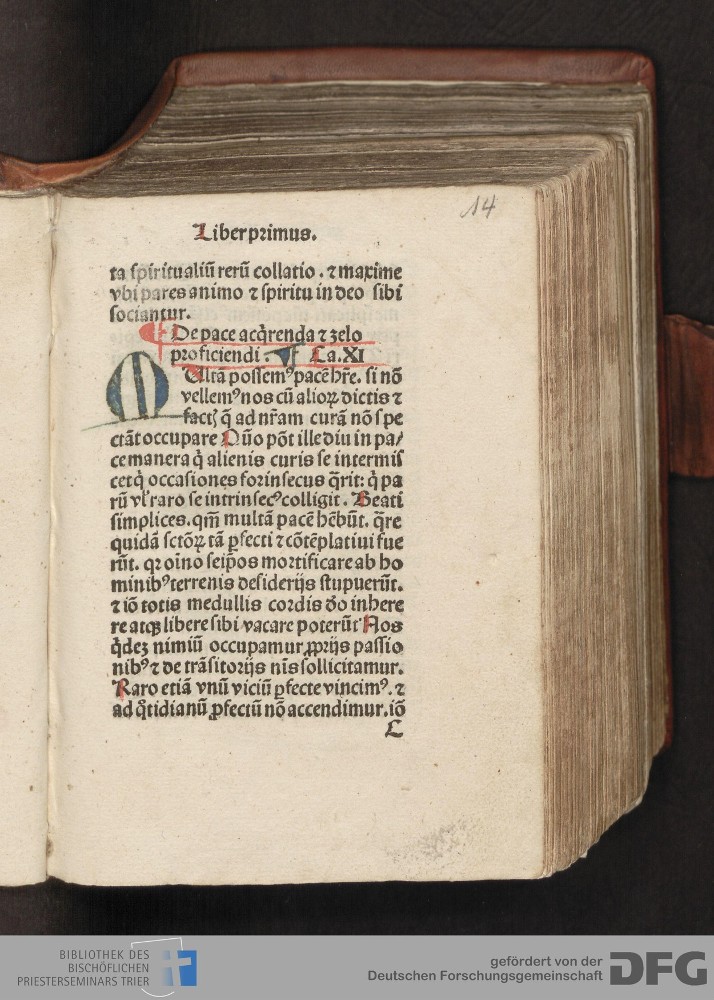 14
Liber primus.
ta spiritualiū rerū collatio . ⁊ maxime
vbi pares animo ⁊ spiritu in deo sibi
sociantur.
De pace acq̄renda ⁊ zelo
proficiendi . ¶ Ca. XI
MUltā possemꝰ pacē hr̄e. si nō
vellemꝰ nos cū alioꝝ dictis ⁊
factꝭ q̄ ad nr̄am curā nō spe
ctāt occupare Quō pōt ille diu in pa/
ce manere q̇ alienis curis se intermiſ
cet q̇ occasiones forinsecus q̄rit: q̇ pa
rū vl' raro se intrinsecꝰ colligit . Beati
simplices. qm̄ multā pacē hēbūt. q̄re
quidā sctōꝝ tā ꝑfecti ⁊ cōtēplatiui fue
rūt. qꝛ oīno seip̄os mortificare ab ho
minibꝰ terrenis desiderijs stupuerūt.
⁊ iō totis medullis cordis deo inhere
re atqꝫ libere sibi vacare poterūt Nos
q̇dez nimiū occupamur ꝓprijs passio
nibꝰ ⁊ de trāsitorijs nīs sollicitamur.
Raro etiā vnū viciū ꝑfecte vincimꝰ. ⁊
ad q̊tidianū ꝓfectū nō accendimur. iō
C
BIBLIOTHEK DES
BISCHÖFLICHEN
PRIESTERSEMINARS TRIER
gefördert von der
Deutschen Forschungsgemeinschaft DFG